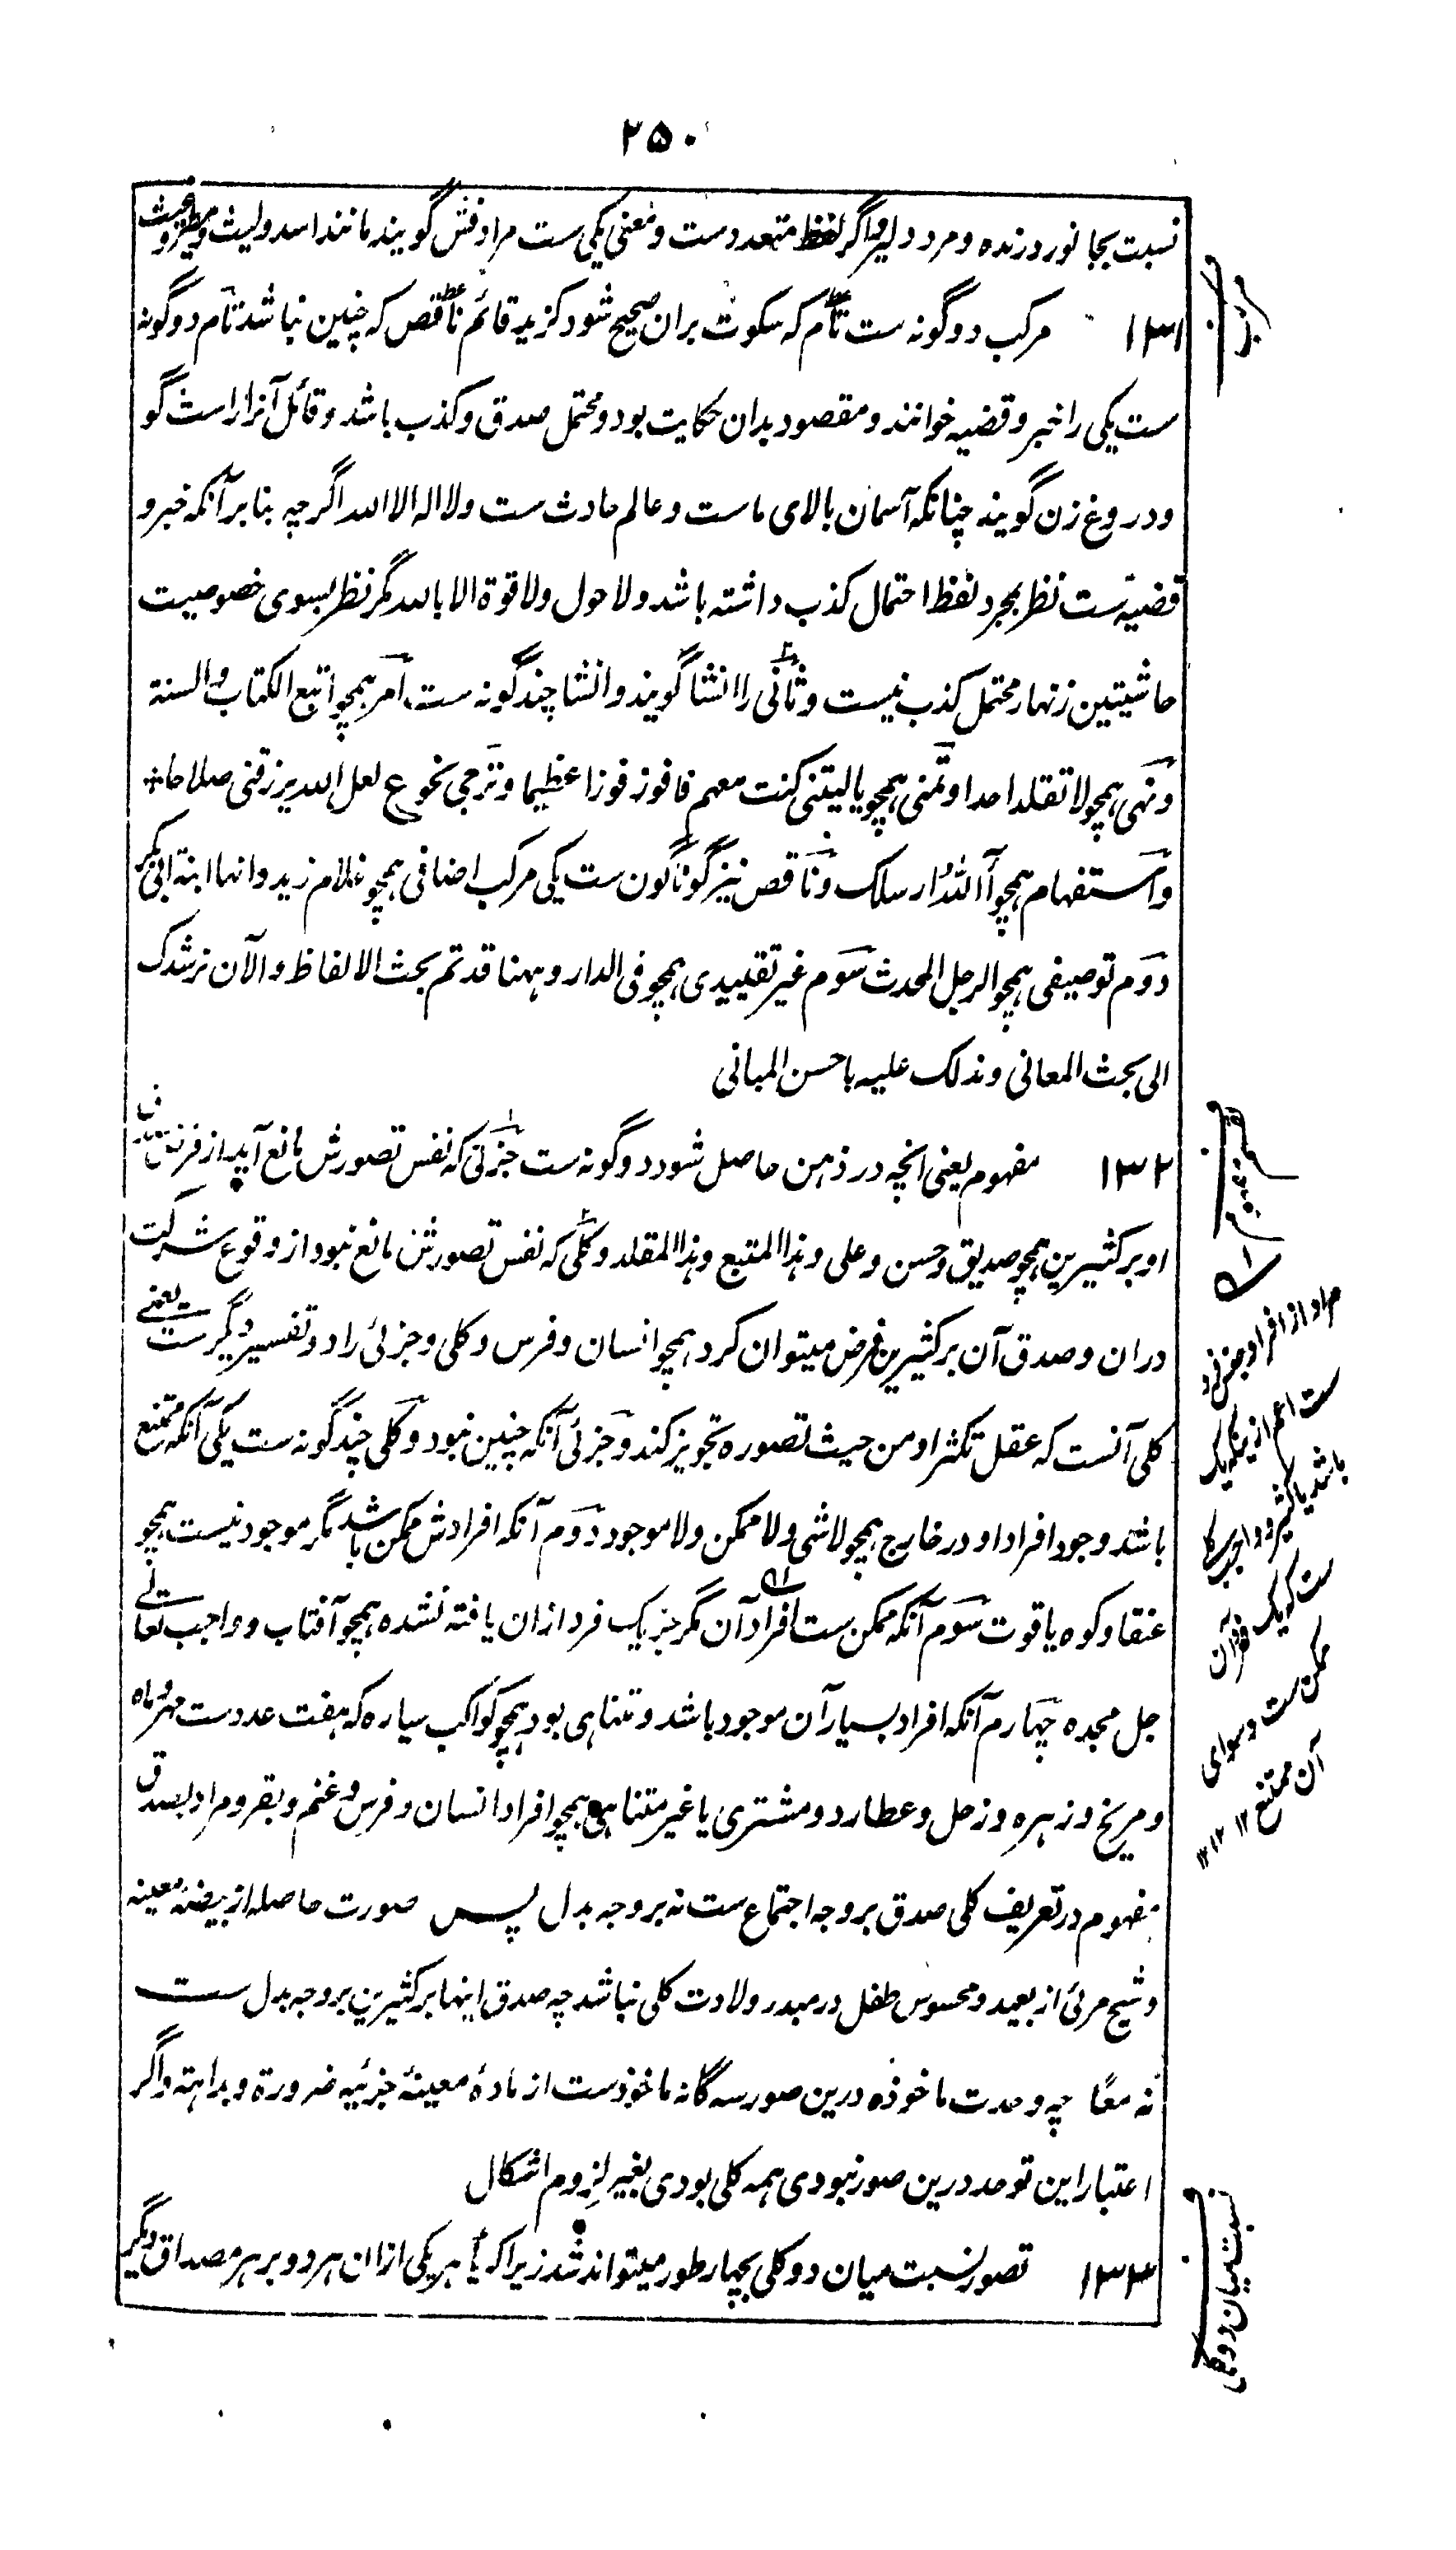 ۲۵۰
نسبت بجانور درنده و مرد دلیر و اگر لفظ متعددست و معنی یکی ست مرادفش گویند مانند اسد و لیث و مطر و غیث
۱۳۱ مرکب دو گونه ست تام که سکوت بران صحیح شود کزید قائم ناقص که چنین نباشد تام دو گونه
ست یکی را خبر و قضیه خوانند و مقصود بدان حکایت بود و محتمل صدق و کذب باشد و قائل آنرا راست گو
و دروغ زن گویند چنانکه آسمان بالای ماست و عالم حادث ست ولا اله الا الله اگرچه بنا بر آنکه خبر و
قضیه ست نظر بمجرد لفظ احتمال کذب داشته باشد ولا حول ولا قوة الا بالله مگر نظر بسوی خصوصیت
حاشیتین زنهار محتمل کذب نیست و ثانی را انشا گویند و انشا چند گونه ست امر همچو اتبع الکتاب والسنة
و نهی همچو لا تقلد احدا و تمنی همچو یا لیتنی کنت معهم فافوز فوزا عظیما و ترجی نحو ع لعل الله یرزقنی صلاحا
و استفهام همچو آالله ارسلک و ناقص نیز گوناگون ست یکی مرکب اضافی همچو غلام زید و انها ابنة ابی بکر
دوم توصیفی همچو الرجل المحدث سوم غیر تقییدی همچو فی الدار و ههنا قد تم بحث الالفاظ و الآن نرشدک
الی بحث المعانی و ندلک علیه باحسن المبانی
۱۳۲ مفهوم یعنی انچه در ذهن حاصل شود دو گونه ست جزئی که نفس تصورش مانع آید از فرض صدق
او بر کثیرین همچو صدیق و حسن و علی و هذا المتبع و هذا المقلد و کلی که نفس تصورش مانع نبود از وقوع شرکت
دران و صدق آن بر کثیرین فرض میتوان کرد همچو انسان و فرس و کلی و جزئی را دو تفسیر دیگرست یعنی
کلی آنست که عقل تکثر او من حیث تصوره تجویز کند و جزئی آنکه چنین نبود و کلی چند گونه ست یکی آنکه ممتنع
باشد وجود افراد او در خارج همچو لاشی ولا ممکن ولا موجود دوم آنکه افرادش ممکن باشد مگر موجود نیست همچو
عنقا و کوه یاقوت سوم آنکه ممکن ست افراد آن مگر جز یک فرد ازان یافته نشده همچو آفتاب و واجب تعالی
جل مجده چهارم آنکه افراد بسیار آن موجود باشد و متناهی بود همچو کواکب سیاره که هفت عددست مهر و ماه
و مریخ و زهره و زحل و عطارد و مشتری یا غیر متناهی همچو افراد انسان و فرس و غنم و بقر و مراد بصدق
مفهوم در تعریف کلی صدق بر وجه اجتماع ست نه بر وجه بدل پس صورت حاصله از بیضهٔ معینه
و شبح مرئی از بعید و محسوس طفل در مبدء ولادت کلی نباشد چه صدق اینها بر کثیرین بر وجه بدل ست
نه معًا چه وحدت ماخوذه درین صور سه گانه ماخوذست از مادهٔ معینهٔ جزئیه ضرورة و بداهة و اگر
اعتبار این توحد درین صور نبودی همه کلی بودی بغیر لزوم اشکال
۱۳۳ تصور نسبت میان دو کلی بچهار طور میتواند شد زیرا که یا هر یکی ازان هر دو بر هر مصداق دیگر
مرکب
مفهوم
مراد از افراد جنس فرد
ست اعم ازینکه یک
باشد یا کثیر و واجب کلی
ست که یک فرد آن
ممکن ست و سوای
آن ممتنع ۱۲
نسبت میان دو کلی